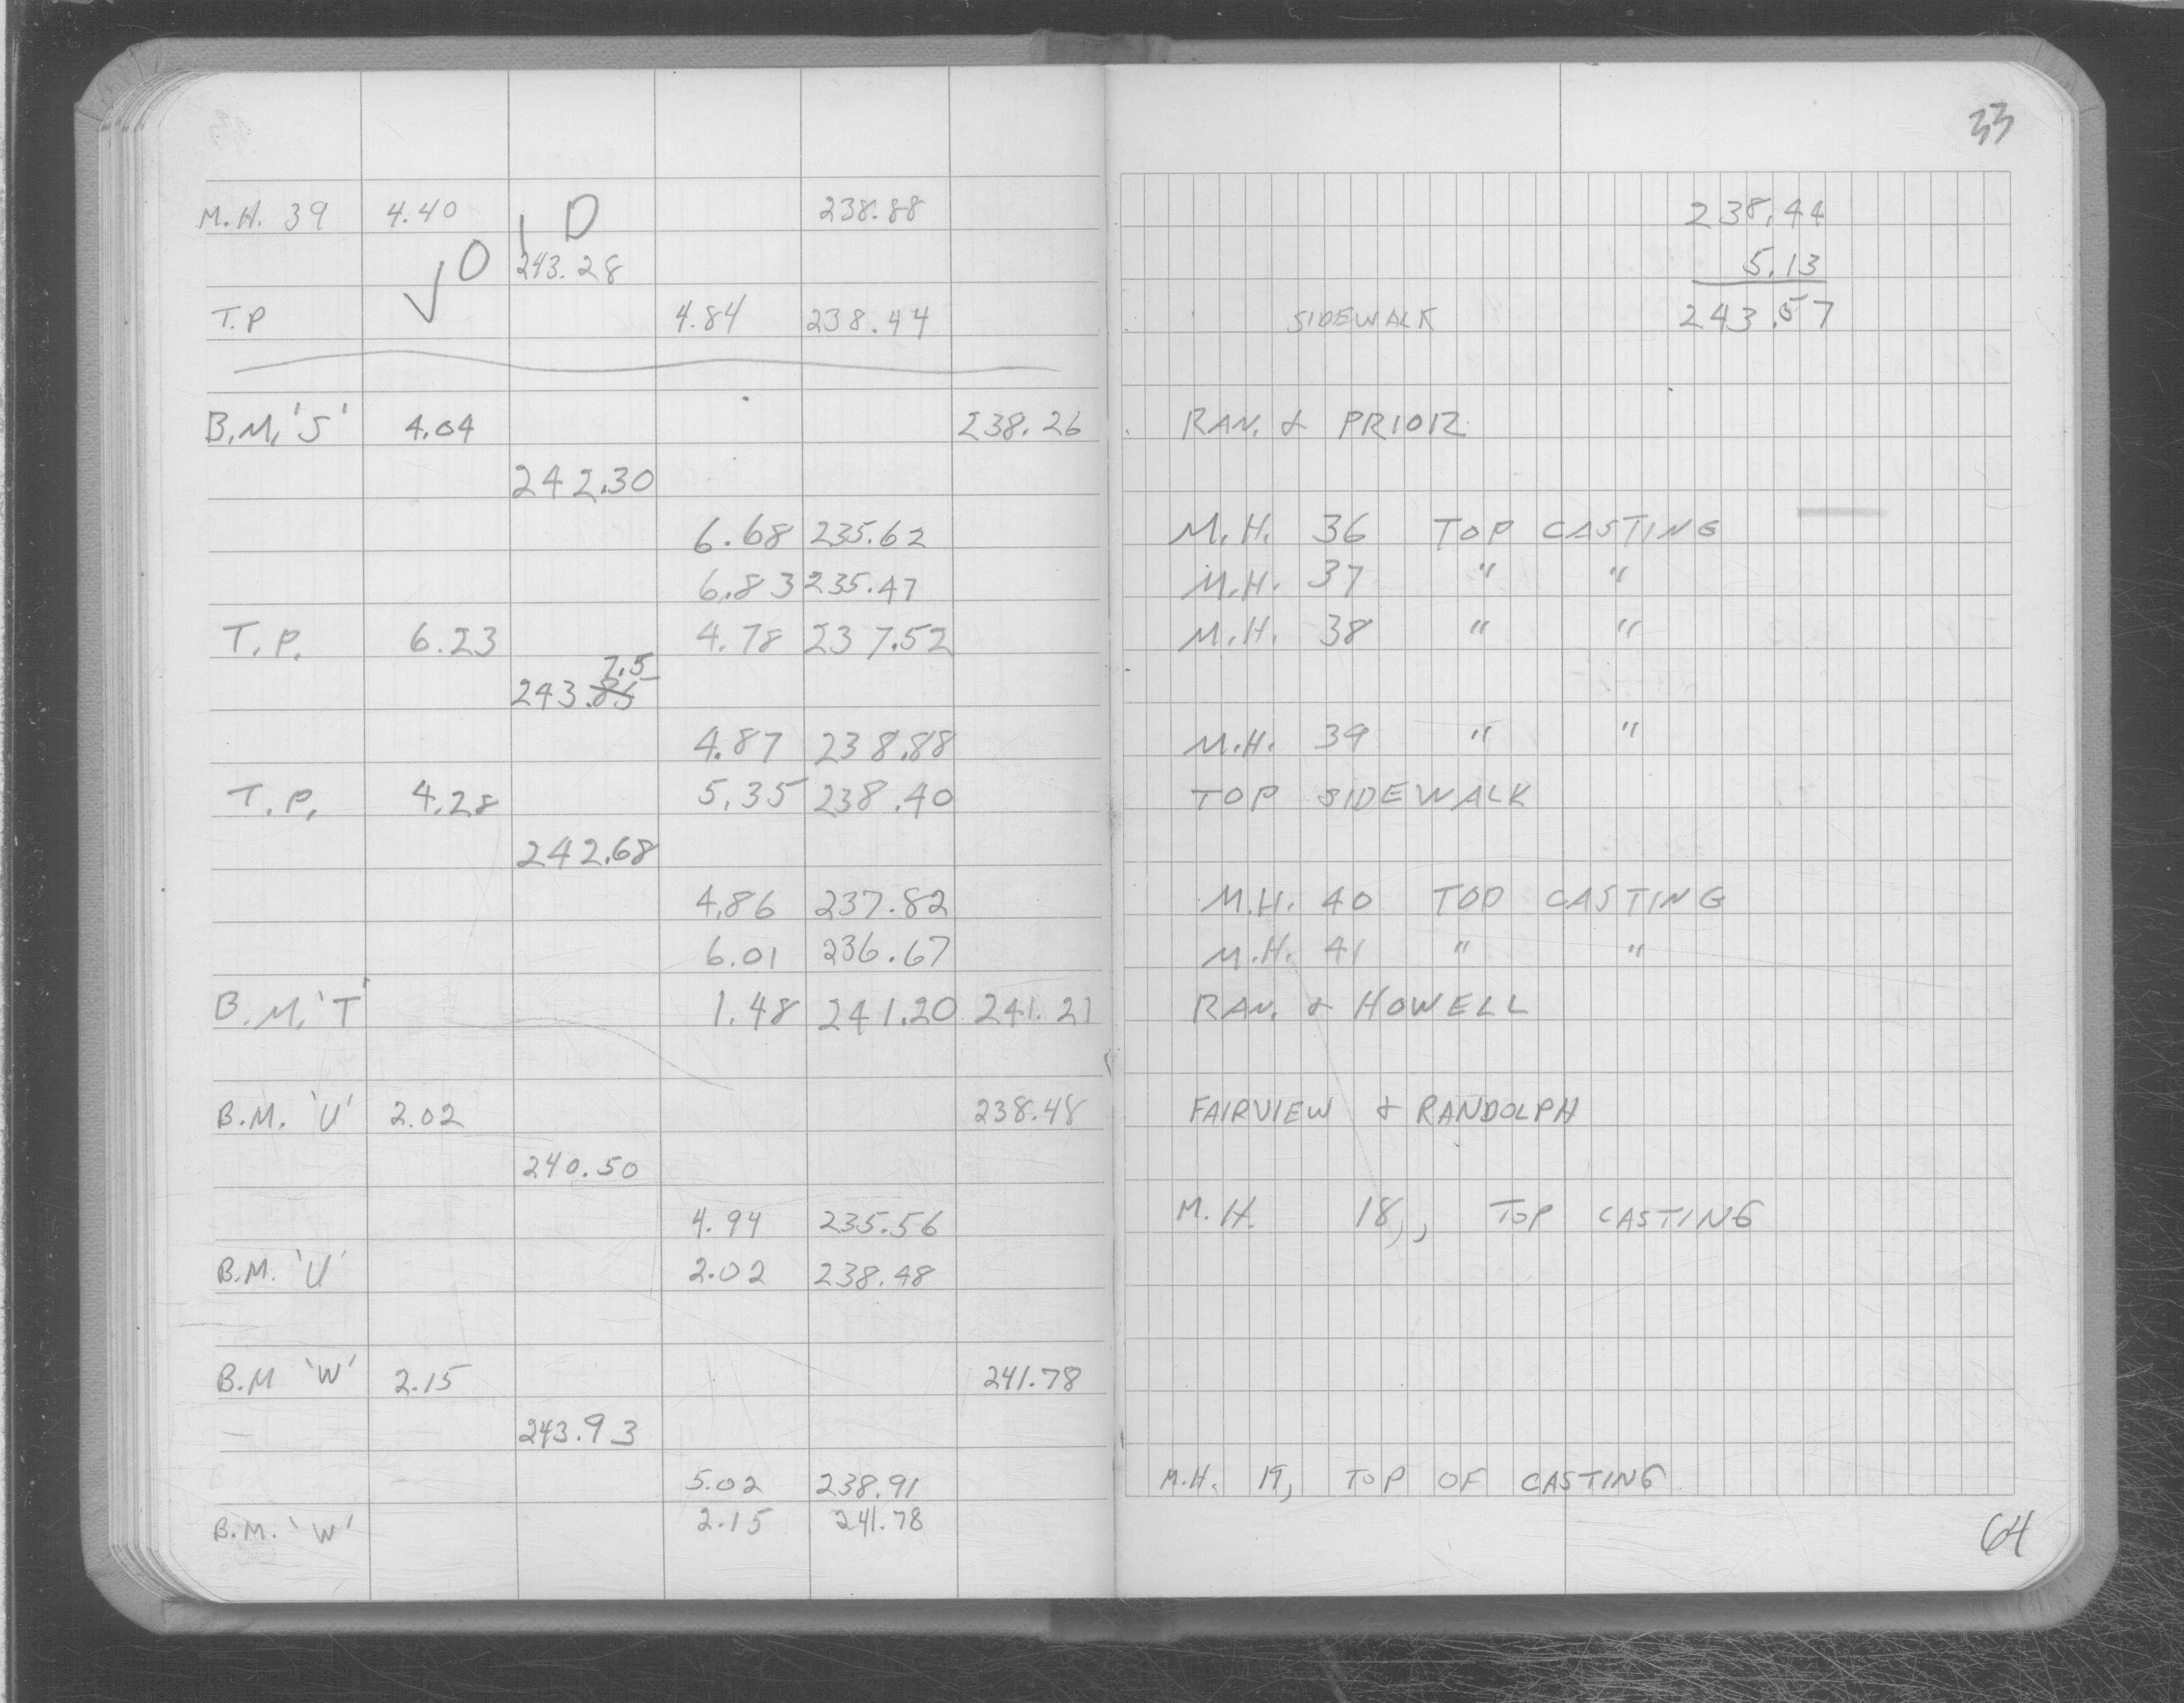 33
M.H. 39 4.40 238.88 238.44
VOID 243.28 5.13
T.P 4.84 238.44 SIDEWALK 243.57
B.M. 'S' 4.04 238.26 RAN. & PRIOR
242.30
6.68 235.62 M.H. 36 TOP CASTING
6.83 235.47 M.H. 37 " "
T.P. 6.23 4.78 237.52 M.H. 38 " "
7.5
243.85
4.87 238.88 M.H. 39 " "
T.P. 4.28 5.35 238.40 TOP SIDEWALK
242.68
4.86 237.82 M.H. 40 TOP CASTING
6.01 236.67 M.H. 41 " "
B.M. 'T' 1.48 241.20 241.21 RAN. & HOWELL
B.M. 'U' 2.02 238.48 FAIRVIEW & RANDOLPH
240.50
4.94 235.56 M.H. 18, TOP CASTING
B.M. 'U' 2.02 238.48
B.M 'W' 2.15 241.78
243.93
5.02 238.91 M.H. 19, TOP OF CASTING
B.M. 'W' 2.15 241.78
64